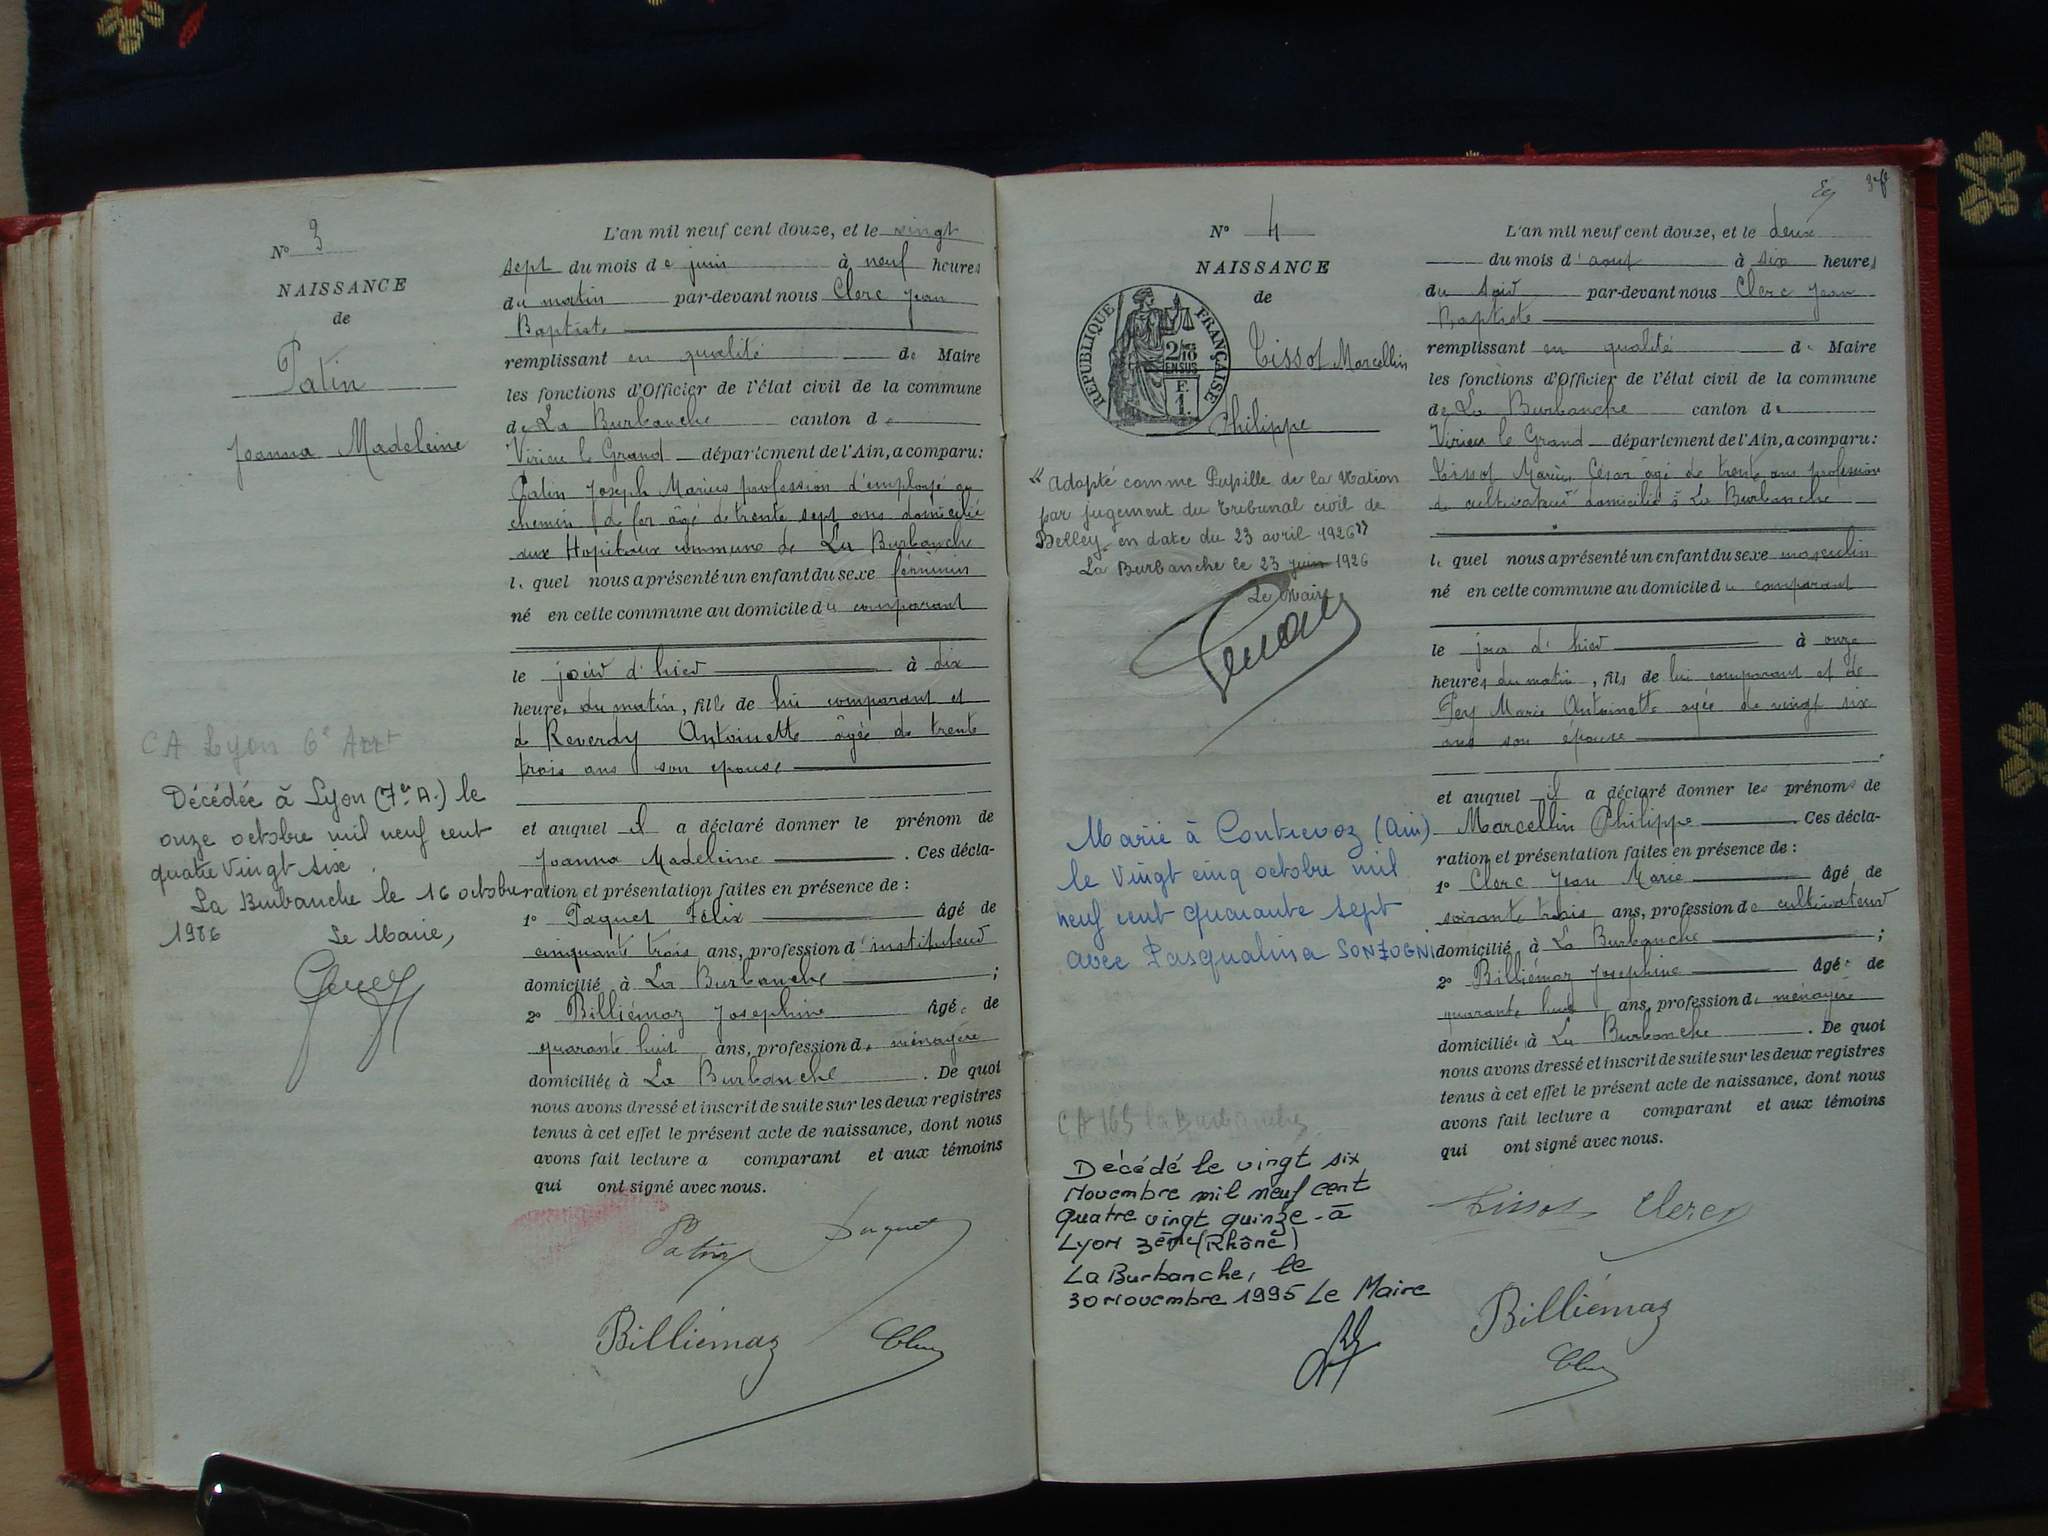 N° 3
NAISSANCE
de
Patin
Joanna Madeleine
CA Lyon 6e Arrt
Décédée à Lyon (7e A.) le
onze octobre mil neuf cent
quatre vingt six.
La Burbanche le 16 octobre
1986 Le Maire,
L'an mil neuf cent douze, et le vingt
sept du mois de juin à neuf heures
du matin par-devant nous Clerc Jean
Baptiste
remplissant en qualité de Maire
les fonctions d'Officier de l'état civil de la commune
de La Burbanche canton de
Virieu le Grand département de l'Ain, a comparu:
Patin Joseph Marius profession d'employé au
chemin de fer âgé de trente sept ans domicilié
aux Hopitaux commune de La Burbanche
lequel nous a présenté un enfant du sexe féminin
né en cette commune au domicile du comparant
le jour d'hier à dix
heures du matin, fille de lui comparant et
de Reverdy Antoinette âgée de trente
trois ans son epouse
et auquel il a déclaré donner le prénom de
Joanna Madeleine. Ces décla-
ration et présentation faites en présence de :
1° Paquet Félix âgé de
cinquante trois ans, profession d'instituteur
domicilié à La Burbanche ;
2° Billiémaz Josephine âgée de
quarante huit ans, profession de ménagère
domiciliée à La Burbanche. De quoi
nous avons dressé et inscrit de suite sur les deux registres
tenus à cet effet le présent acte de naissance, dont nous
avons fait lecture a comparant et aux témoins
qui ont signé avec nous.
Patin Paquet
Billiémaz Clerc
N° 4
NAISSANCE
de
REPUBLIQUE FRANÇAISE
2/10
EN SUS
F.
1.
Tissot Marcellin
Philippe
"Adopté comme Pupille de la Nation
par jugement du Tribunal civil de
Belley, en date du 23 avril 1926"
La Burbanche le 23 juin 1926
Le Maire
Marié à Contrevoz (Ain)
le vingt cinq octobre mil
neuf cent quarante sept
avec Pasqualina SONZOGNI.
CA 165 la Burbanche
Décédé le vingt six
Novembre mil neuf cent
quatre vingt quinze - à
Lyon 3ème (Rhône)
La Burbanche, le
30 Novembre 1995 Le Maire
L'an mil neuf cent douze, et le deux
du mois d'aout à six heures
du soir par-devant nous Clerc Jean
Baptiste
remplissant en qualité de Maire
les fonctions d'Officier de l'état civil de la commune
de La Burbanche canton de
Virieu le Grand département de l'Ain, a comparu:
Tissot Marius César âgé de trente ans profession
de cultivateur domicilié à La Burbanche
lequel nous a présenté un enfant du sexe masculin
né en cette commune au domicile du comparant
le jour d'hier à onze
heures du matin, fils de lui comparant et de
Pey Marie Antoinette agée de vingt six
ans son épouse
et auquel il a déclaré donner les prénoms de
Marcellin Philippe. Ces décla-
ration et présentation faites en présence de :
1° Clerc Jean Marie âgé de
soixante trois ans, profession de cultivateur
domicilié à La Burbanche ;
2° Billiémaz Josephine âgée de
quarante huit ans, profession de ménagère
domiciliée à La Burbanche. De quoi
nous avons dressé et inscrit de suite sur les deux registres
tenus à cet effet le présent acte de naissance, dont nous
avons fait lecture a comparant et aux témoins
qui ont signé avec nous.
Tissot Clerc
Billiémaz
Clerc